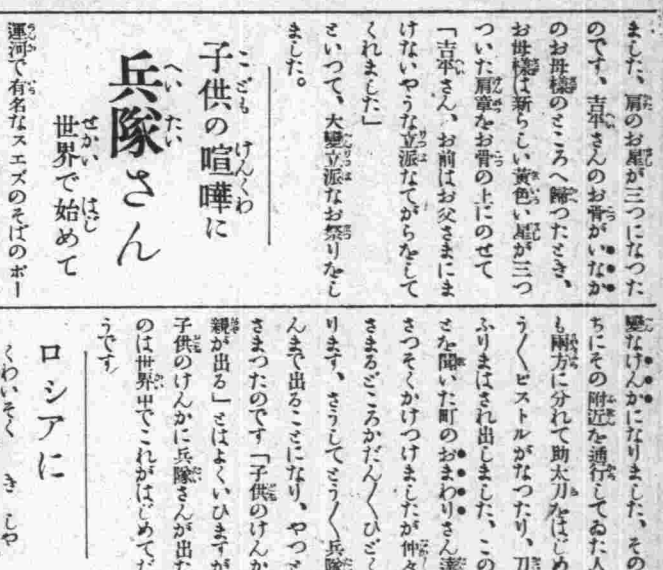 ました、肩のお星が三つになつた
のです、吉平さんのお骨がいなか
のお母様のところへ歸つたとき、
お母様は新らしい黄色い星が三つ
ついた肩章をお骨の上にのせて
「吉平さん、お前はお父さまにま
けないやうな立派なてがらをして
くれました」
といつて、大變立派なお祭りをし
ました。
子供の喧嘩に
兵隊さん
世界で始めて
運河で有名なスエズのそばのポー
變なけんかになりました、その
ちにその附近を通行してゐた人
も兩方に分れて助太刀をはじめ
う〳〵ピストルがなつたり、刀
ふりまはされ出しました、この
とを聞いた町のおまわりさん達
さつそくかけつけましたが仲々
さまるどころかだん〳〵ひどく
ります、さうしてとう〳〵兵隊
んまで出ることになり、やつと
さまつたのです「子供のけんか
親が出る」とはよくいひますが
子供のけんかに兵隊さんが出た
のは世界中でこれがはじめてだ
うです
ロシアに
くわいそく きしや